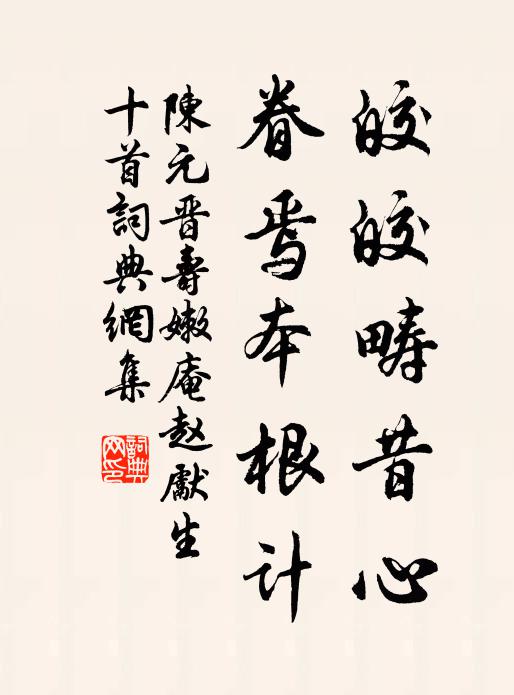 皎皎疇昔心
眷焉本根计
陳元晋壽嫩庵赵獻生
十首詞典網集
詞典网印